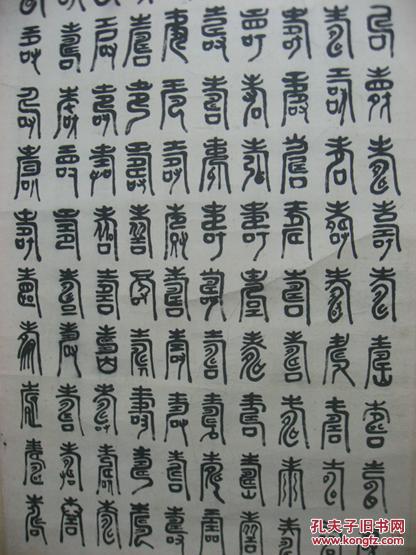 壽壽壽壽壽壽壽壽壽
壽壽壽壽壽壽壽壽壽
壽壽壽壽壽壽壽壽壽
壽壽壽壽壽壽壽壽壽
壽壽壽壽壽壽壽壽壽
壽壽壽壽壽壽壽壽壽
壽壽壽壽壽壽壽壽壽
壽壽壽壽壽壽壽壽壽
壽壽壽壽壽壽壽壽壽
壽壽壽壽壽壽壽壽壽
孔夫子旧书网